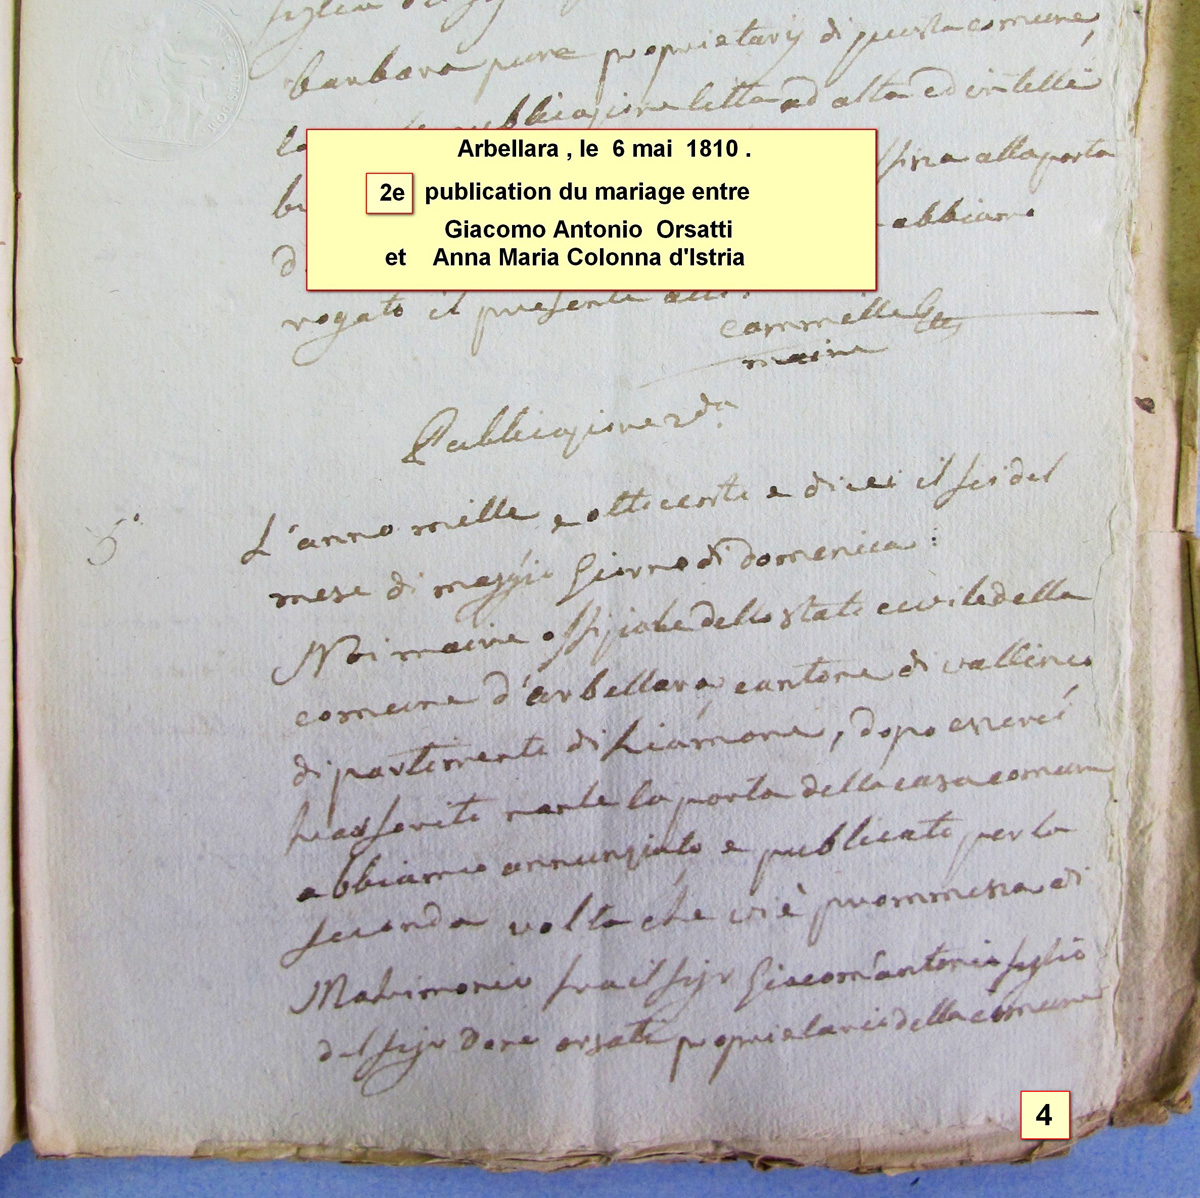 figlia del
barbara pure proprietarij di questa comune,
pubblicazione letta ad alta ed intelli
affissa alla porta
abbiamo
rogato il presente atto.
cammille
maire
Arbellara , le 6 mai 1810 .
2e publication du mariage entre
Giacomo Antonio Orsatti
et Anna Maria Colonna d'Istria
Pubblicazione 2da
5°
L'anno mille e ottocento e dieci il sei del
mese di maggio Giorno di domenica :
Noi maire offiziale dello stato civile della
comune d'arbellara, cantone di vallinco
dipartimento di Liamone, dopo esserci
trasferito nante la porta della casa comune
abbiamo annunziato e publicato per la
seconda volta che vi è prommessa di
Matrimonio fra il sigr Giacom'antonio figlio
del sigr Dore orsati proprietario della comune
4